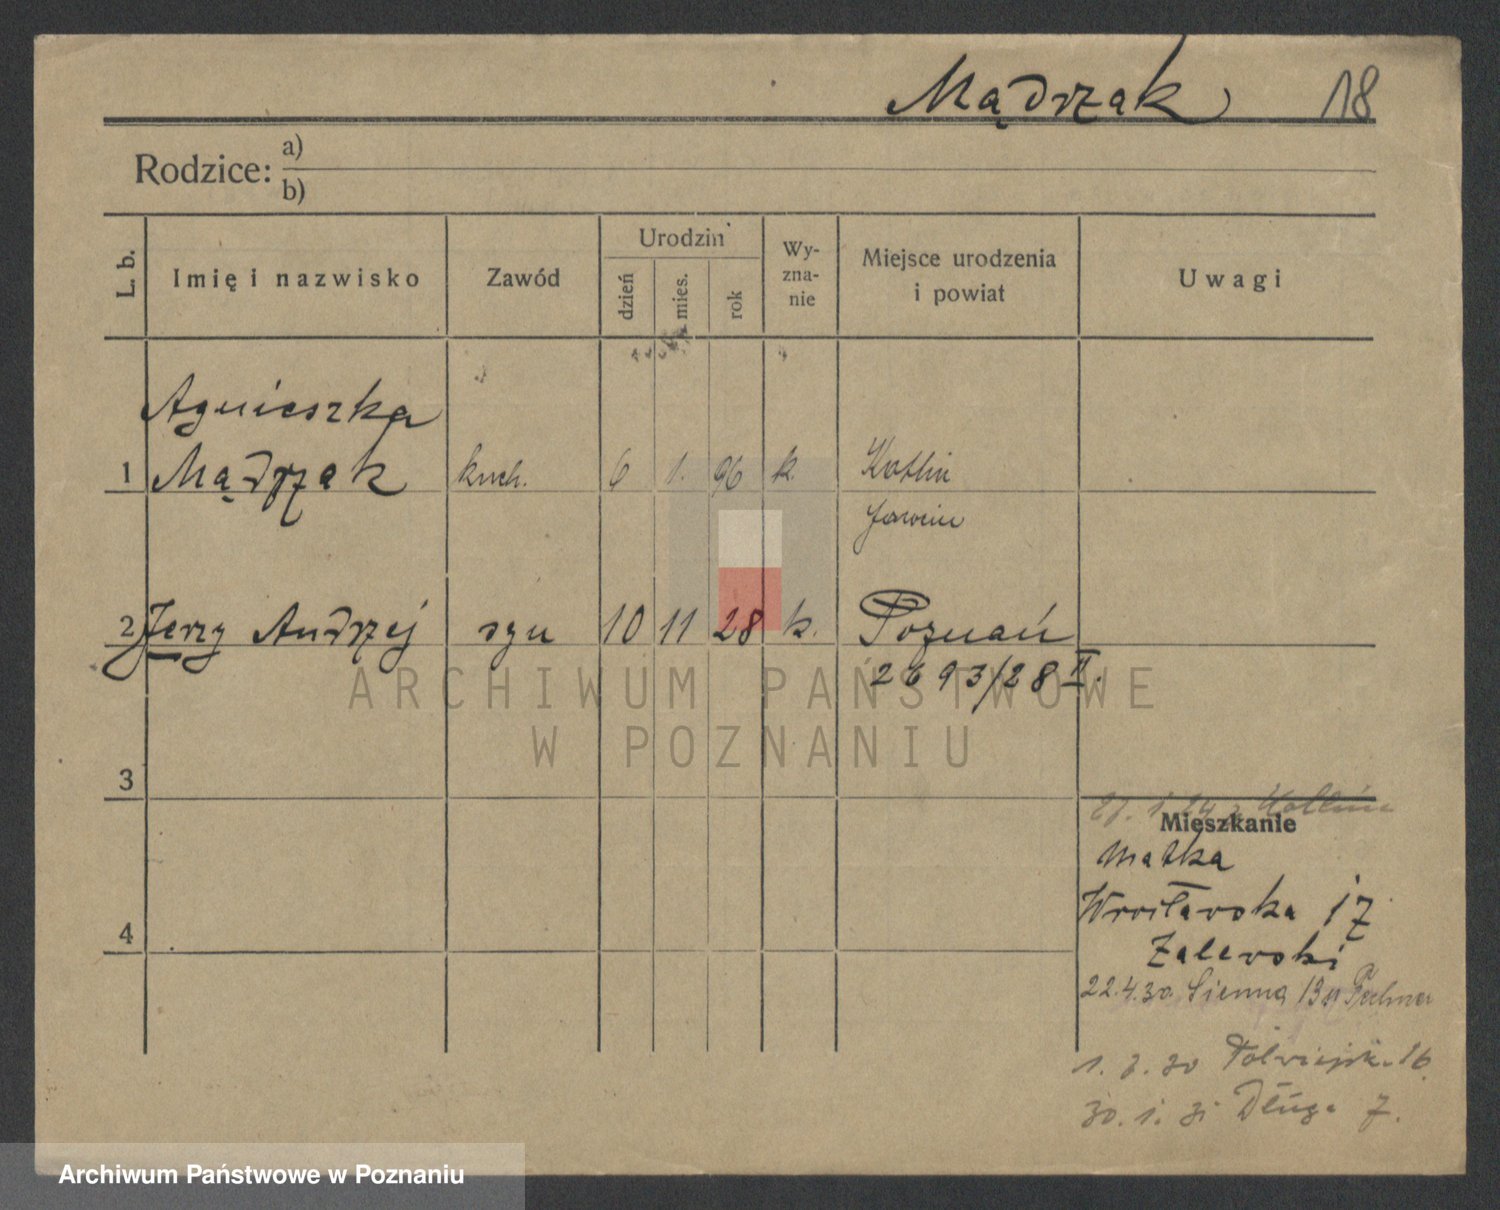 Mądrzak 18
Rodzice: a)
b)
L. b. Imię i nazwisko Zawód Urodzin dzień mies. rok Wy-zna-nie Miejsce urodzenia i powiat Uwagi
Agnieszka
1 Mądrzak kuch. 6 1. 96 k. Kotlin
Jarocin
2 Jerzy Andrzej syn 10 11 28 k. Poznań
2693/28 II.
ARCHIWUM PAŃSTWOWE
W POZNANIU
3
Kotlina
Mieszkanie
Matka
Wrocławska 17
Zalewski
4
22.4.30 Sienna 13
1. 7. 30 Półwiejsk. 26
30. 1. 31 Długa 7.
Archiwum Państwowe w Poznaniu